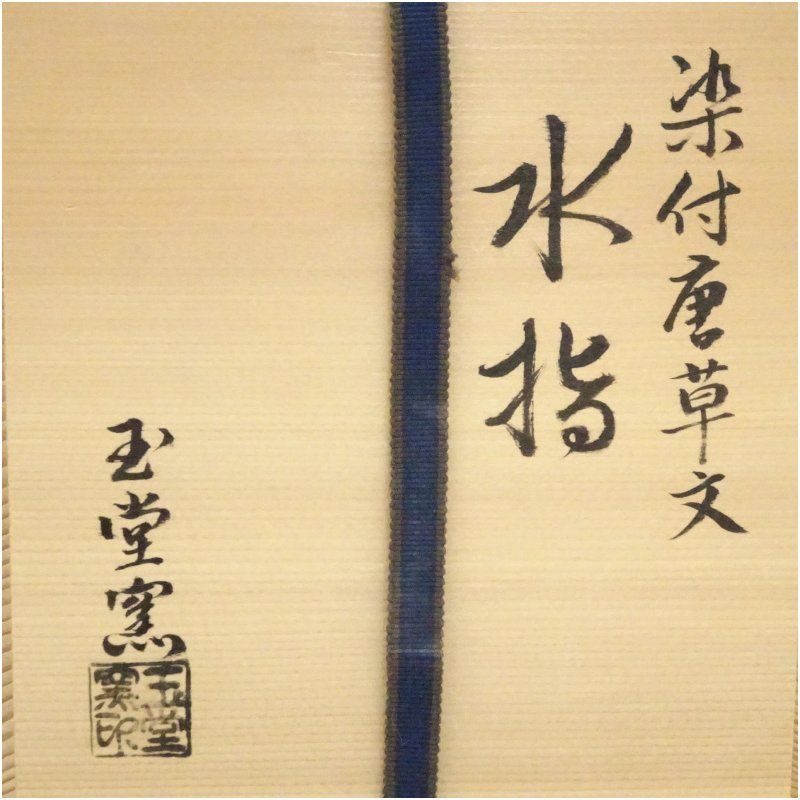 染付唐草文
水指
玉堂窯
玉堂
窯印